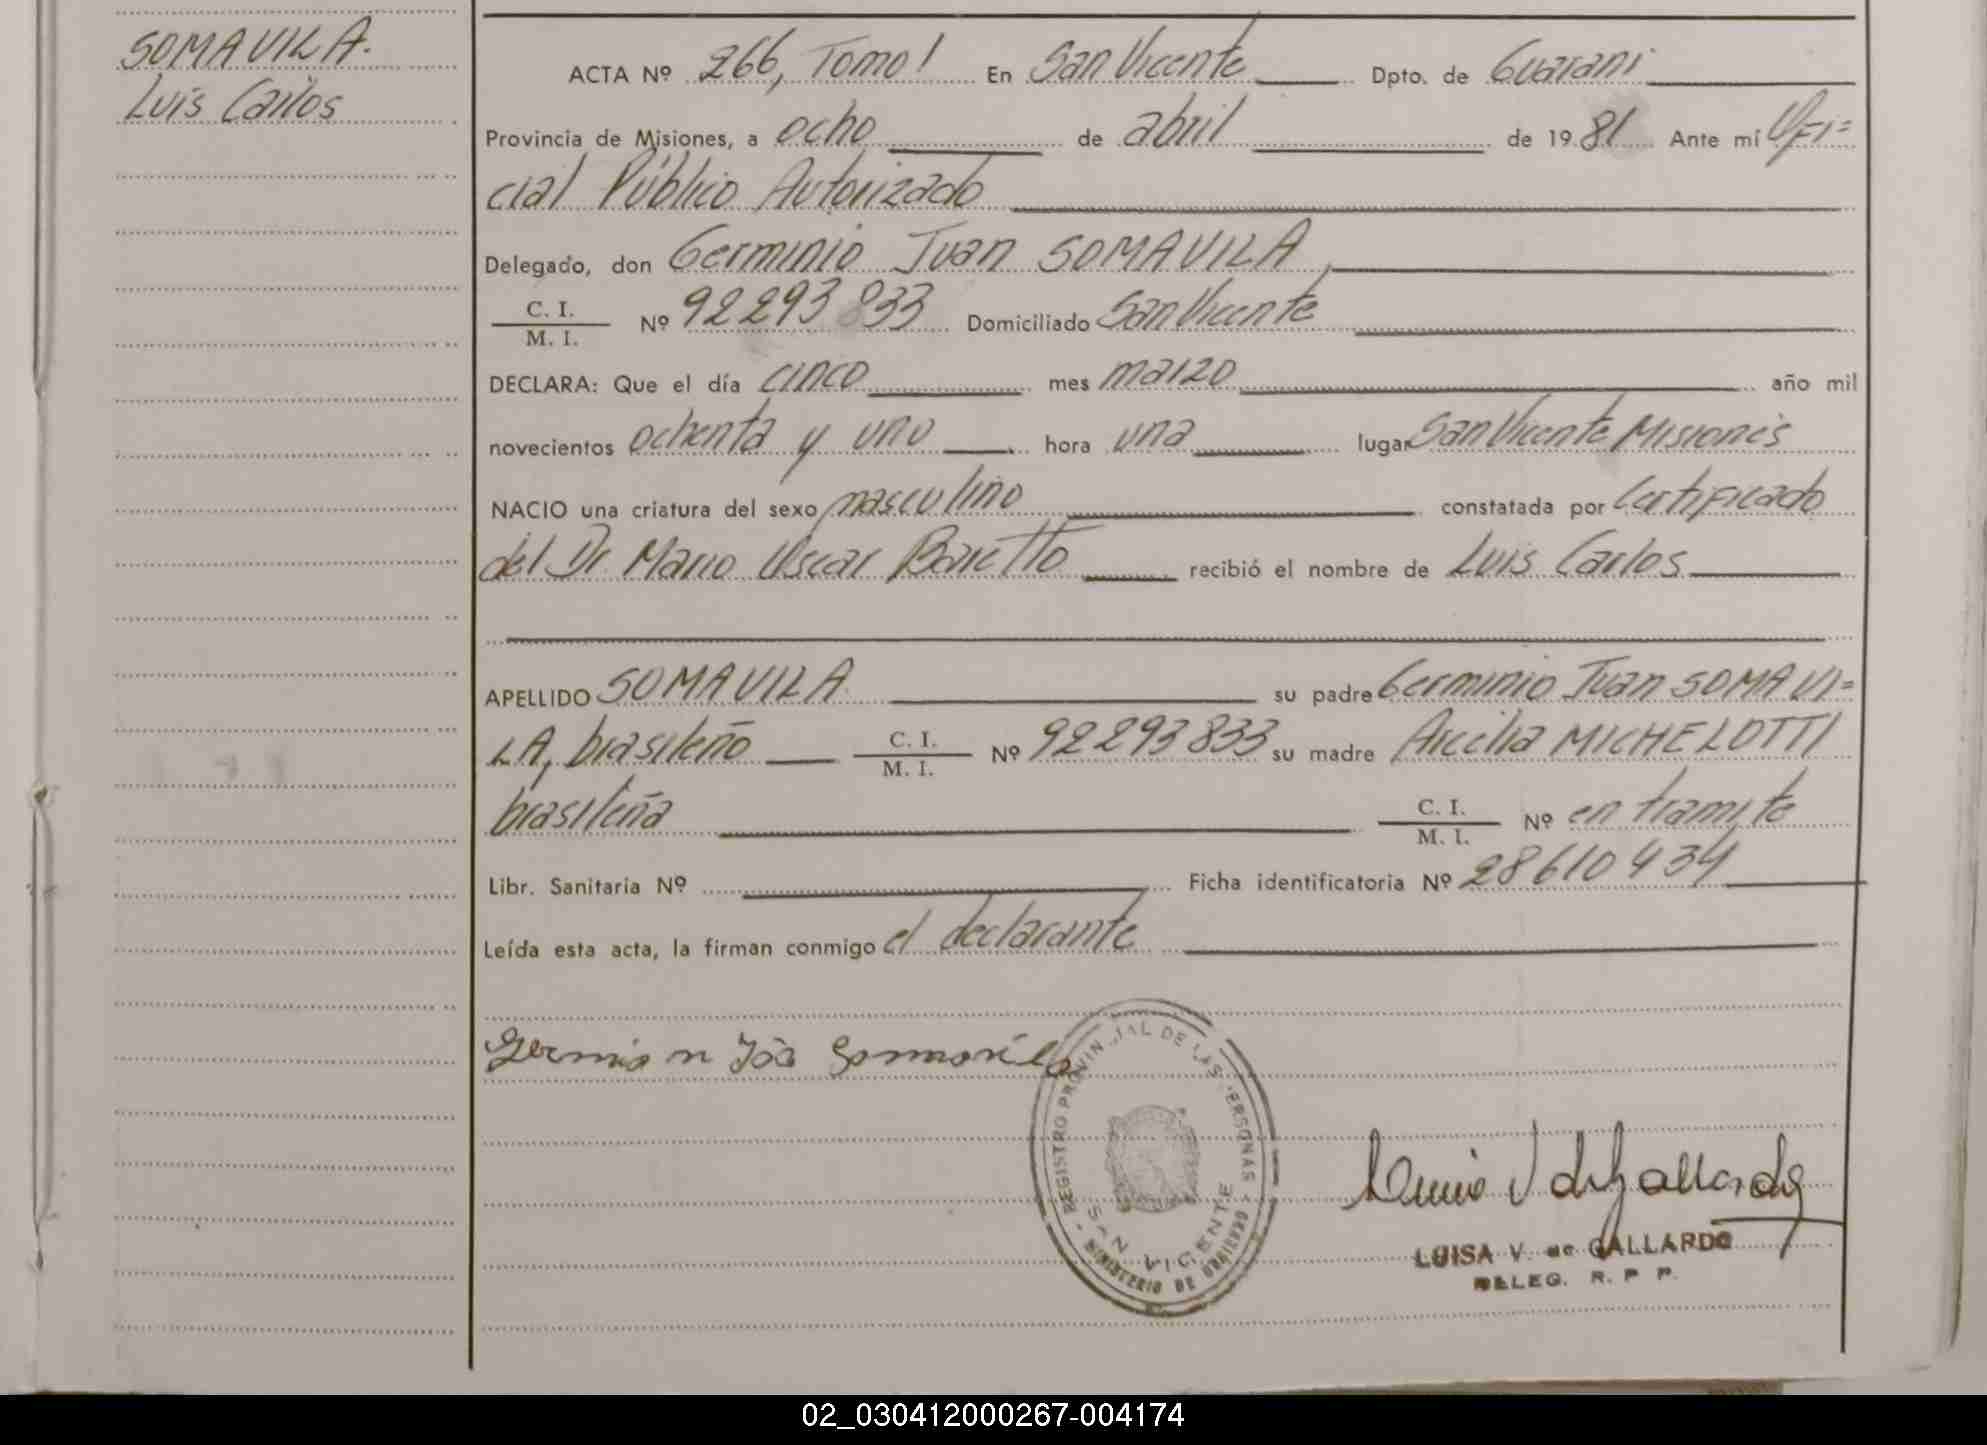 SOMAVILA.
Luis Carlos
ACTA Nº 266, Tomo I En San Vicente Dpto. de Guarani
Provincia de Misiones, a ocho de abril de 1981 Ante mí Ofi=
cial Público Autorizado
Delegado, don Germinio Juan SOMAVILA,
C. I.
M. I. Nº 92293833 Domiciliado San Vicente
DECLARA: Que el día cinco mes marzo año mil
novecientos ochenta y uno hora una lugar San Vicente Misiones
NACIO una criatura del sexo masculino constatada por Certificado
del Dr. Mario Oscar Baretto recibió el nombre de Luis Carlos
APELLIDO SOMAVILA su padre Germinio Juan SOMAVI=
LA, brasileño C. I. M. I. Nº 92293833 su madre Arcilia MICHELOTTI
brasileña C. I. M. I. Nº en tramite
Libr. Sanitaria Nº Ficha identificatoria Nº 28610434
Leída esta acta, la firman conmigo el declarante
REGISTRO PROVINCIAL DE LAS PERSONAS
SAN VICENTE
MINISTERIO DE GOBIERNO
LUISA V. de GALLARDO
DELEG. R. P. P.
02_030412000267-004174